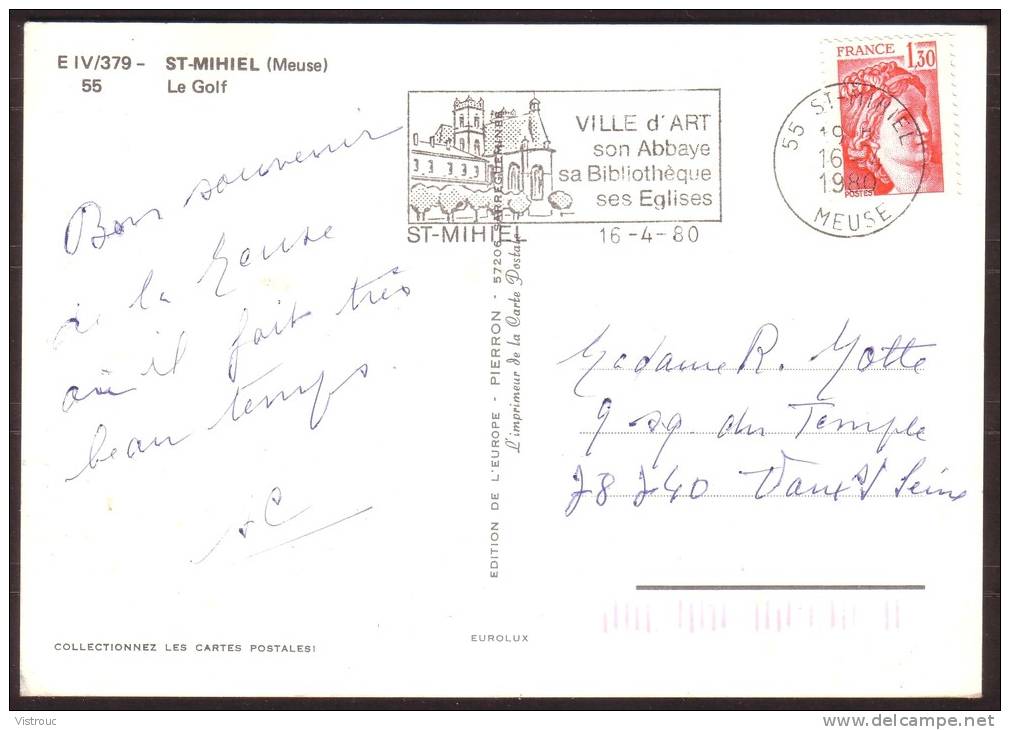 E IV/379 - ST-MIHIEL (Meuse)
55 Le Golf
Bon souvenir
de la Meuse
où il fait très
beau temps.
COLLECTIONNEZ LES CARTES POSTALES!
EDITION DE L'EUROPE - PIERRON - 57206 SARREGUEMINES
L'imprimeur de la Carte Postale
EUROLUX
VILLE d'ART
son Abbaye
sa Bibliothèque
ses Eglises
ST-MIHIEL 16-4-80
FRANCE 1,30
POSTES
55 ST-MIHIEL
19 H
16
1980
MEUSE
Madame R. Motte
9 sq. du Temple
78740 Vaux s/ Seine
Vistrouc
www.delcampe.net